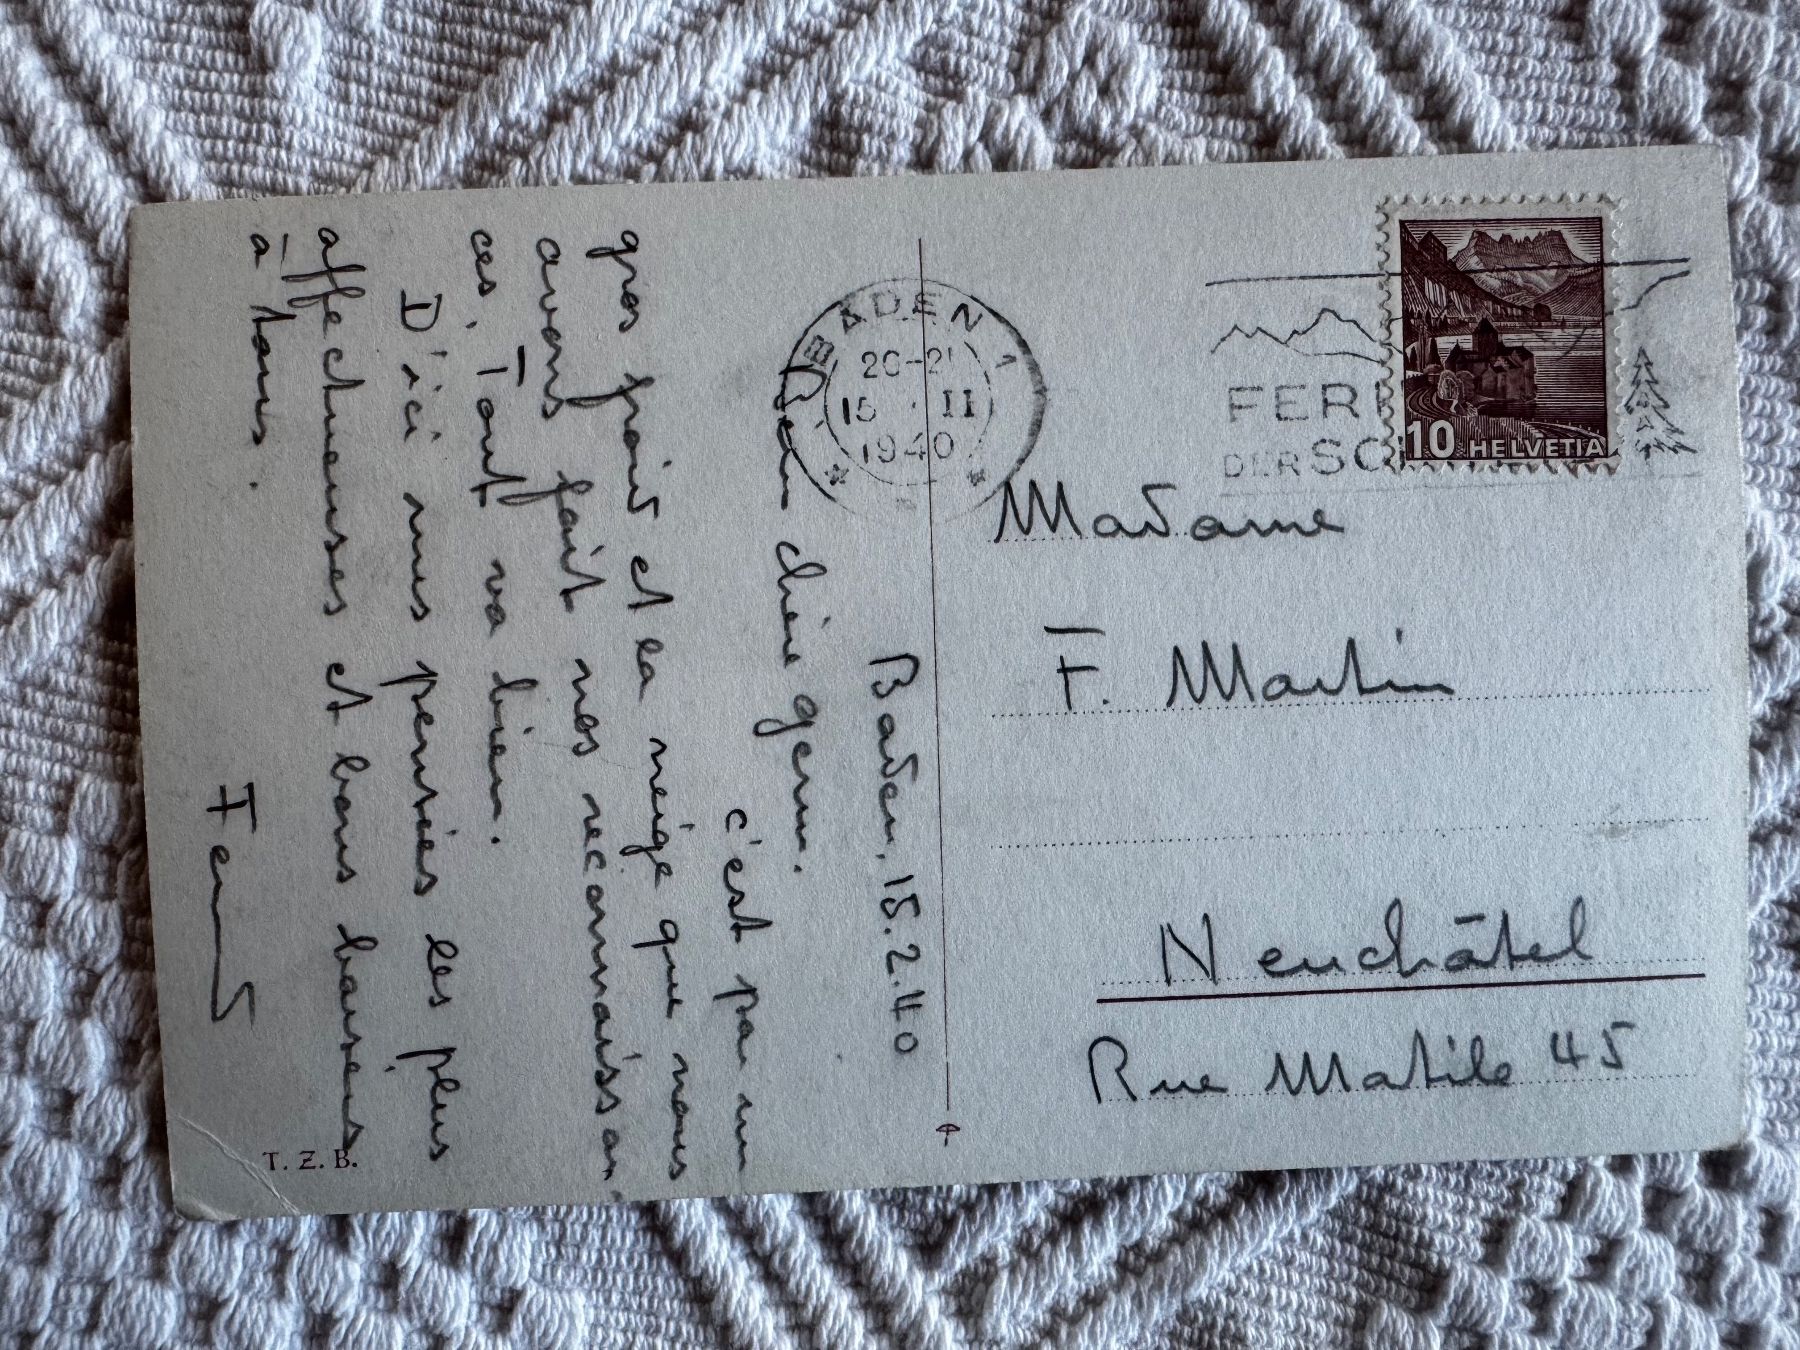 Baden, 15.2.40
Bien chère
c'est par un
gros froid et la neige que nous
avons fait nos reconnaissan-
ces. Tout va bien.
D'ici mes pensées les plus
affectueuses et bons baisers
à tous.
T. Z. B.
BADEN 1
20-21
15 · II
1940
FER
DER SC
10 HELVETIA
Madame
F. Martin
Neuchâtel
Rue Matile 45